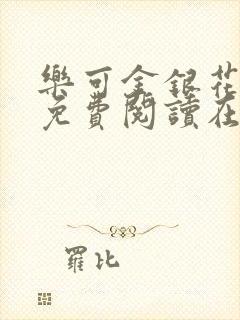 樂可金銀花
免費閱讀在
羅比